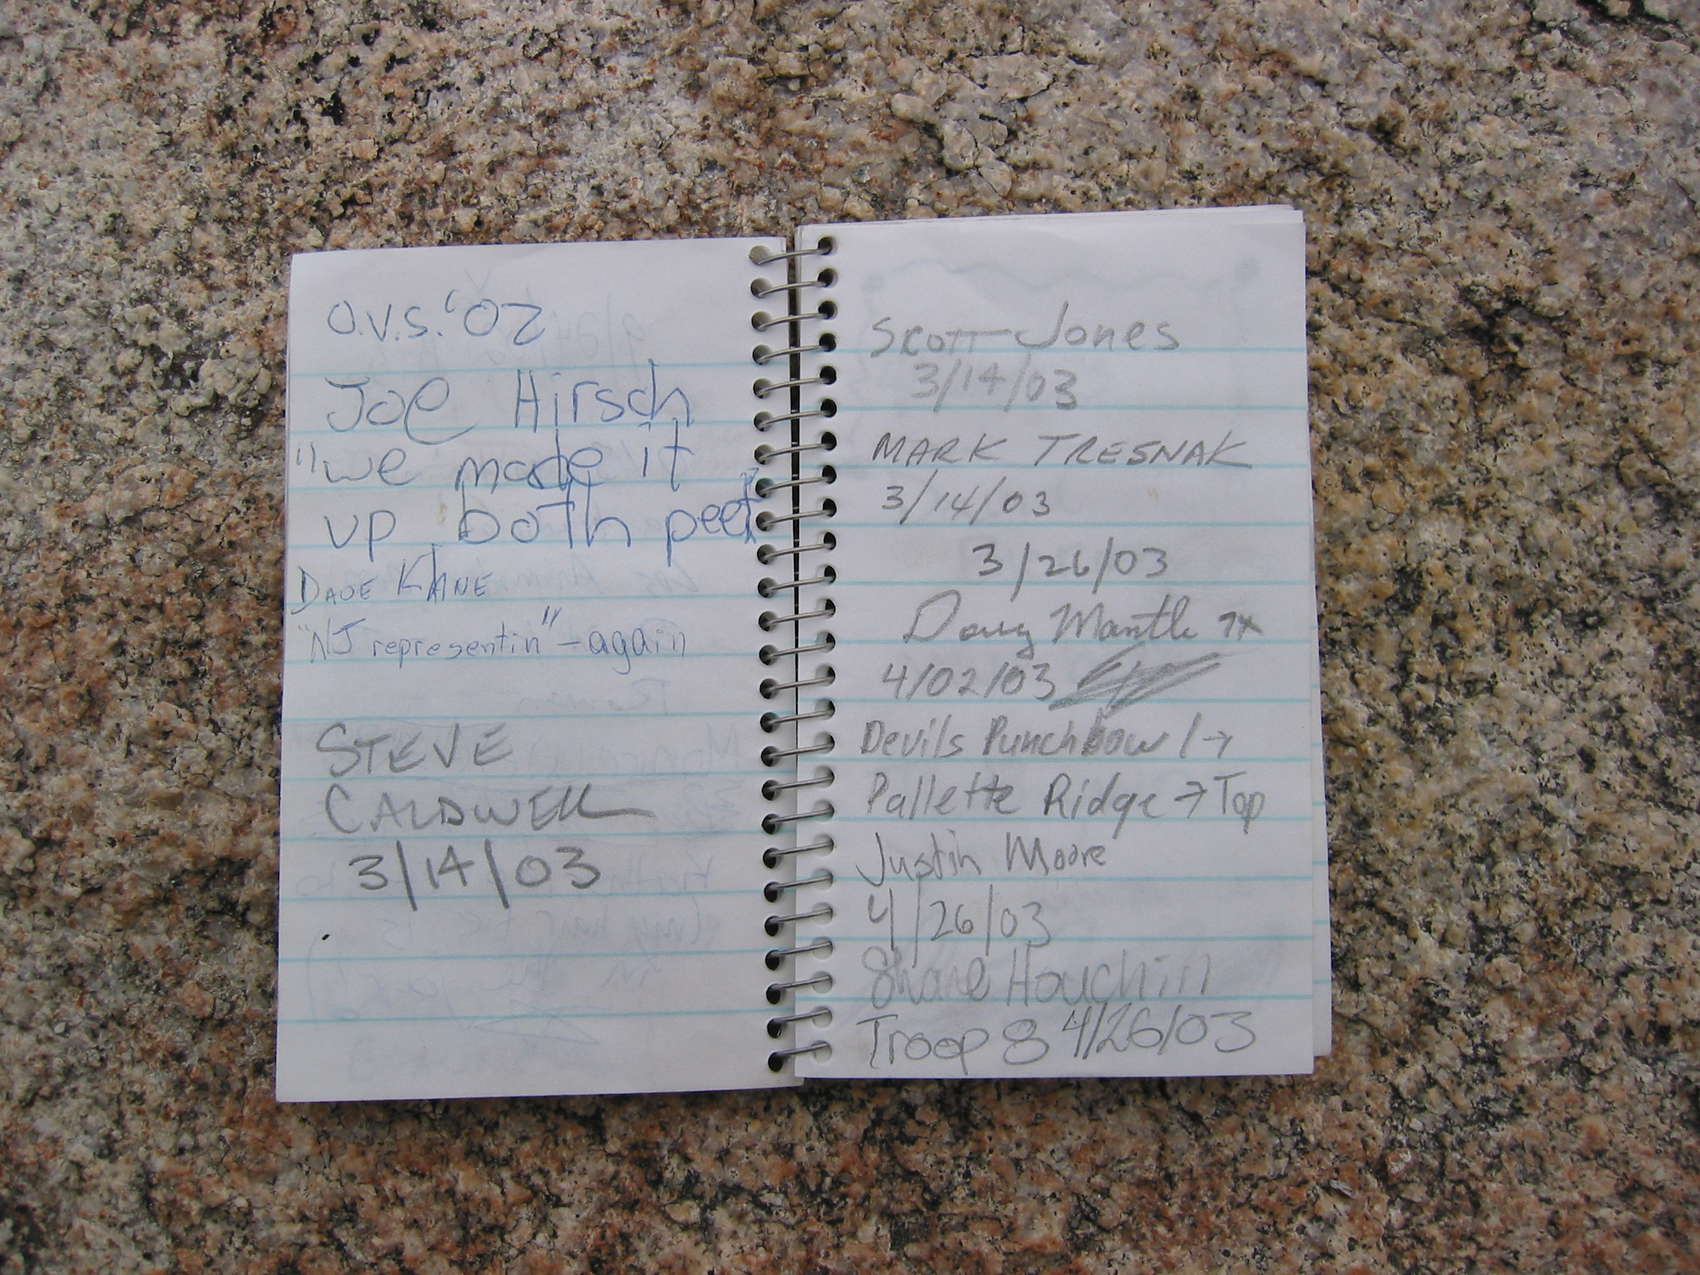 O.V.S. '02
Joe Hirsch
"we made it
up both peet
DAVE KANE
"NJ representin" - again
STEVE
CALDWELL
3/14/03
Scott Jones
3/14/03
MARK TRESNAK
3/14/03
3/26/03
Doug Mantle 7x
4/02/03
Devils Punchbowl →
Pallette Ridge → Top
Justin Moore
4/26/03
Shane Houchin
Troop 8 4/26/03